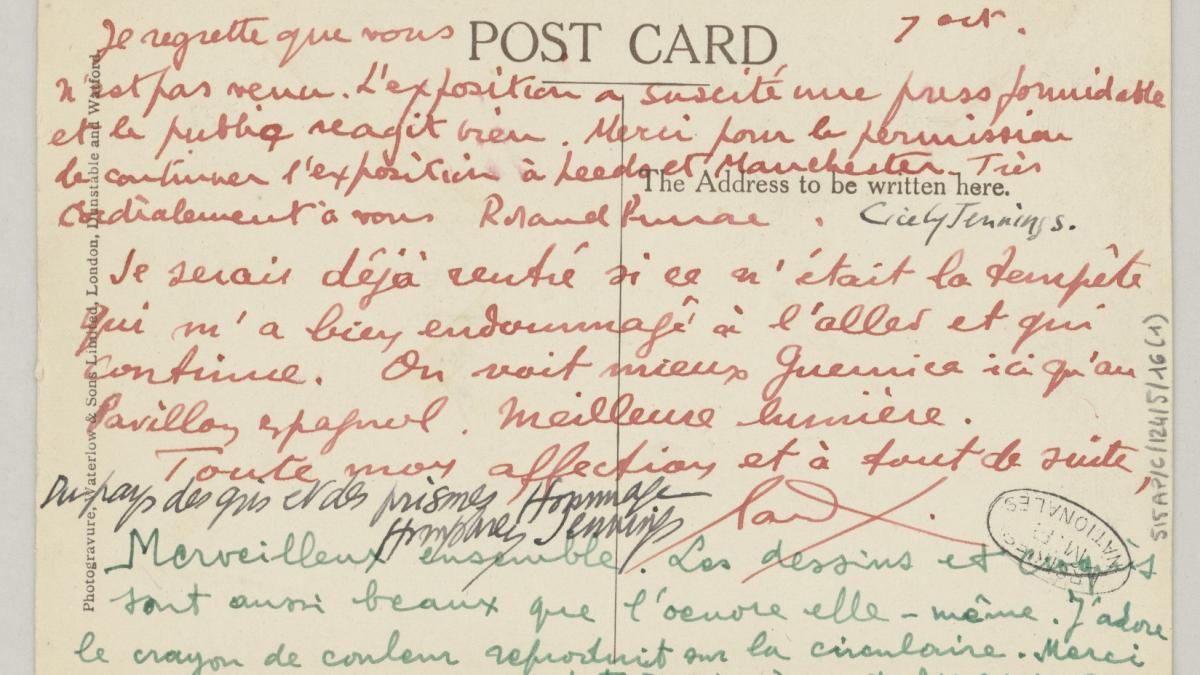 7 oct.
POST CARD
Je regrette que vous
n'est pas venu. L'exposition a suscité une press formidable
et le public reagit bien. Merci pour la permission
de continuer l'exposition à Leeds et Manchester. Très
The Address to be written here.
Cordialement à vous Roland Penrose.
Cicely Jennings.
Je serais déjà rentré si ce n'était la tempête
qui m'a bien endommagé à l'aller et qui
continue. On voit mieux Guernica ici qu'au
Pavillon espagnol. Meilleure lumière.
Toute mon affection et à tout de suite,
Du pays des gris et des prismes Hommage
Humphrey Jennings
Merveilleux ensemble. Les dessins et
sont aussi beaux que l'oeuvre elle-même. J'adore
le crayon de couleur reproduit sur la circulaire. Merci
Photogravure, Waterlow & Sons Limited, London, Dunstable and Watford.
515AP/C/1241/5/16(1)
ARCHIVES NATIONALES